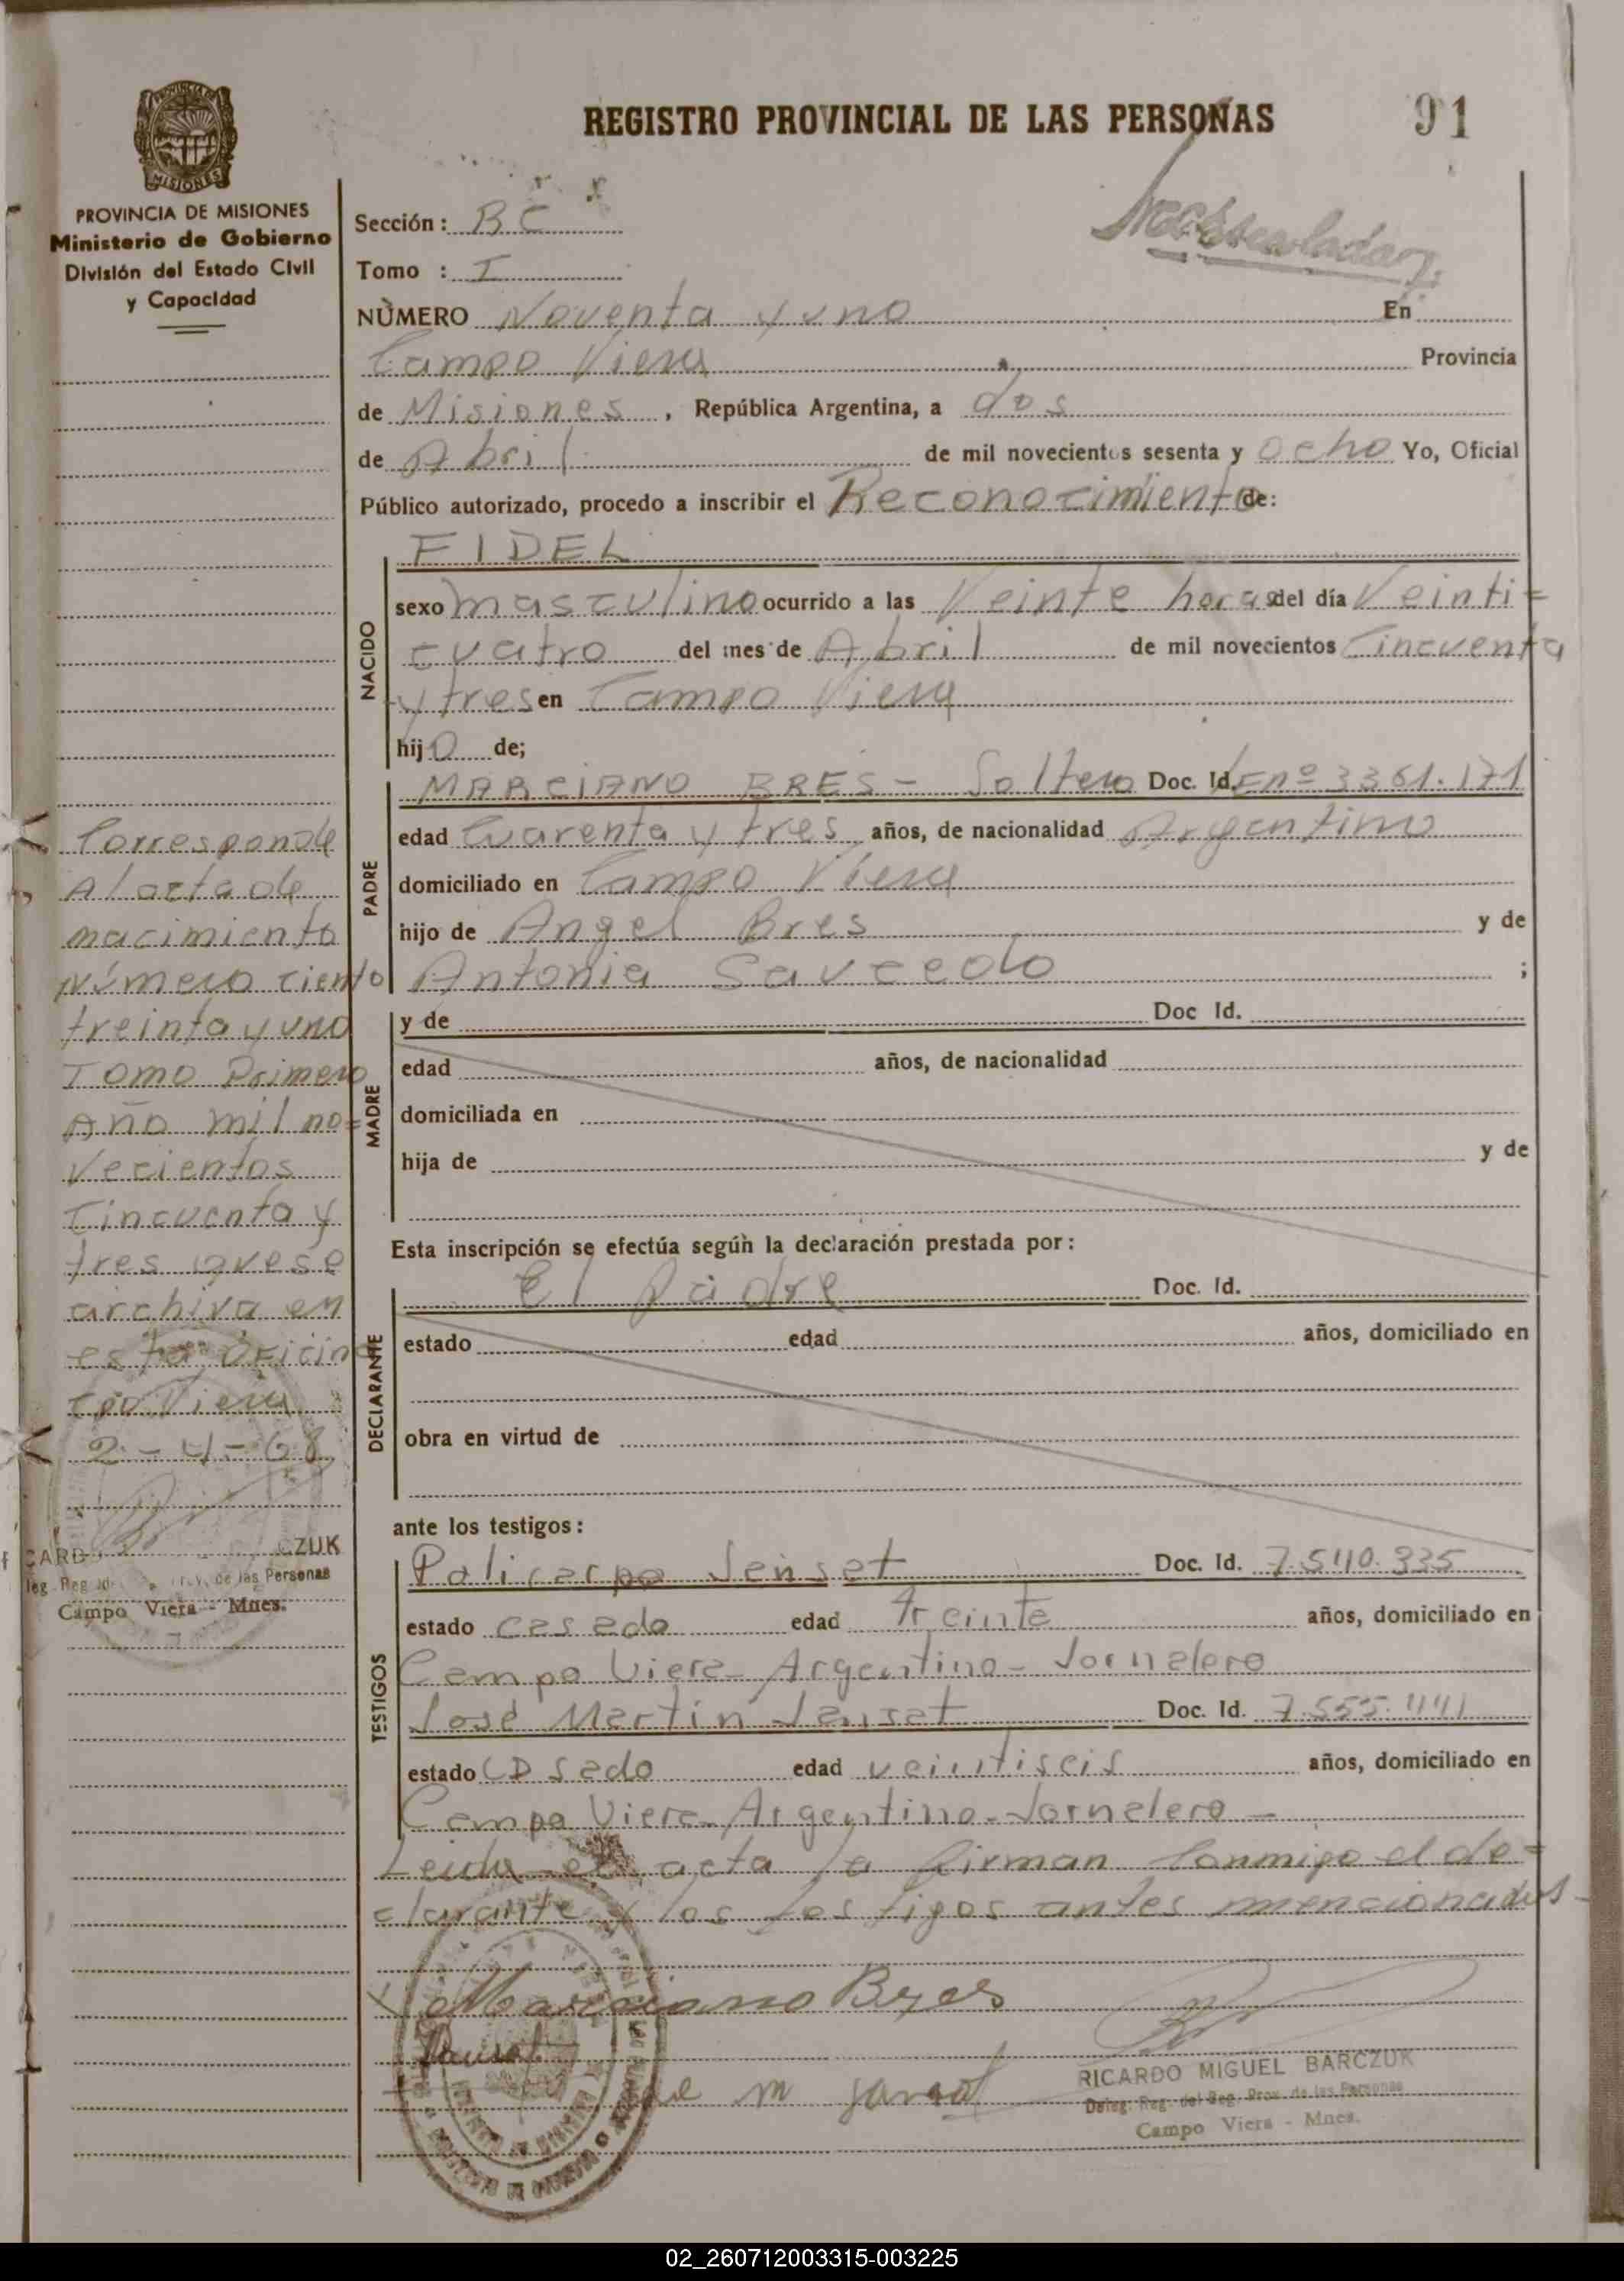 REGISTRO PROVINCIAL DE LAS PERSONAS
91
PROVINCIA DE MISIONES
Ministerio de Gobierno
División del Estado Civil
y Capacidad
Sección: BC
Tomo : I
NÙMERO Noventa y uno En
Campo Viera Provincia
de Misiones, República Argentina, a dos
de Abril de mil novecientos sesenta y ocho Yo, Oficial
Público autorizado, procedo a inscribir el Reconocimiento de:
NACIDO
FIDEL
sexo masculino ocurrido a las Veinte horas del día Veinti=
cuatro del mes de Abril de mil novecientos Cincuenta
y tres en Campo Viera
hijo de;
PADRE
MARCIANO BRES - Soltero Doc. Id. LEnº 3361.171
edad Cuarenta y tres años, de nacionalidad Argentino
domiciliado en Campo Viera
hijo de Angel Bres y de
Antonia Saucedo ;
MADRE
y de Doc Id.
edad años, de nacionalidad
domiciliada en
hija de y de
Esta inscripción se efectúa según la declaración prestada por:
DECLARANTE
El Padre Doc. Id.
estado edad años, domiciliado en
obra en virtud de
ante los testigos:
TESTIGOS
Policarpo Jenset Doc. Id. 7.540.335
estado casado edad treinta años, domiciliado en
Campo Viera - Argentino - Jornalero
José Martin Jenset Doc. Id. 7.555.441
estado casado edad veintiseis años, domiciliado en
Campo Viera - Argentino - Jornalero -
Leida el acta la firman conmigo el de=
clarante y los testigos antes mencionados -
Marciano Bres
RICARDO MIGUEL BARCZUK
Deleg. Reg. del Reg. Prov. de las Personas
Campo Viera - Mnes.
Corresponde
Al acta de
nacimiento
Número ciento
treinta y uno
Tomo Primero
Año mil no=
vecientos
Cincuenta y
tres que se
archiva en
esta Oficina
Cpo. Viera
2-4-68
CARD ZUK
de las Personas
Campo Viera - Mnes.
02_260712003315-003225